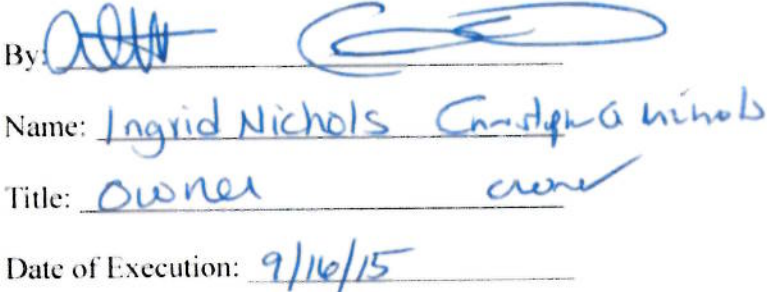 By:
Name: Ingrid Nichols G Nichols
Title: Owner owner
Date of Execution: 9/16/15